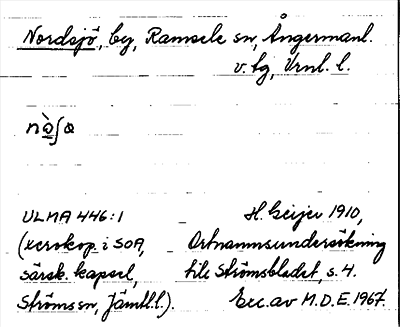 Nordsjö, by, Ramsele sn, Ångermanl.
v. tg, Vrnl. l.
nò̱ʃɷ
ULMA 446:1
(xerokop. i SOA,
särsk. kapsel,
Ströms sn, Jämtl.l.).
H. Geijer 1910,
Ortnamnsundersökning
till Strömsbladet, s. 4.
Exc. av M.D.E. 1967.